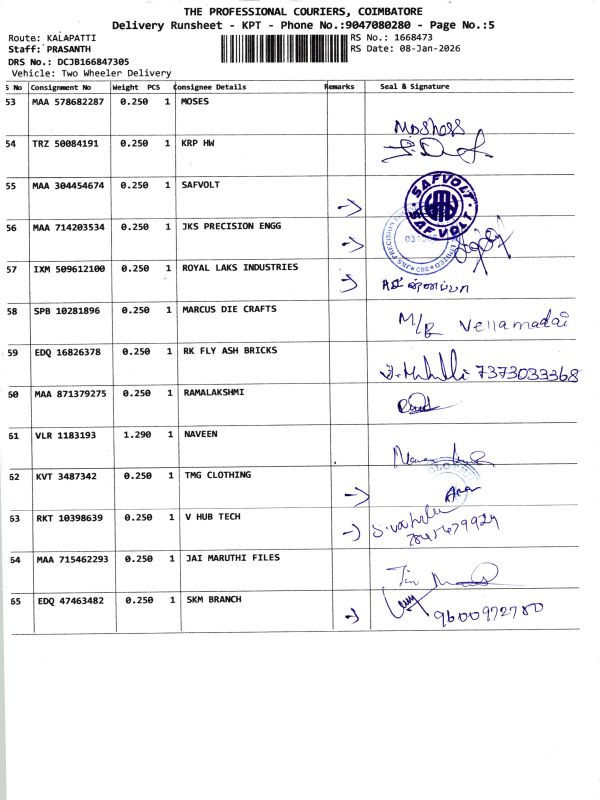 THE PROFESSIONAL COURIERS, COIMBATORE
Delivery Runsheet - KPT - Phone No.:9047080280 - Page No.:5
Route: KALAPATTI
RS No.: 1668473
Staff: PRASANTH
RS Date: 08-Jan-2026
DRS No.: DCJB166847305
Vehicle: Two Wheeler Delivery
S No Consignment No Weight PCS Consignee Details Remarks Seal & Signature
53 MAA 578682287 0.250 1 MOSES
54 TRZ 50084191 0.250 1 KRP HW
55 MAA 304454674 0.250 1 SAFVOLT SAFVOLT SAFVOLT
56 MAA 714203534 0.250 1 JKS PRECISION ENGG
57 IXM 509612100 0.250 1 ROYAL LAKS INDUSTRIES
58 SPB 10281896 0.250 1 MARCUS DIE CRAFTS M/R Vellamadai
59 EDQ 16826378 0.250 1 RK FLY ASH BRICKS 7373033368
60 MAA 871379275 0.250 1 RAMALAKSHMI
61 VLR 1183193 1.290 1 NAVEEN
62 KVT 3487342 0.250 1 TMG CLOTHING
63 RKT 10398639 0.250 1 V HUB TECH
64 MAA 715462293 0.250 1 JAI MARUTHI FILES
65 EDQ 47463482 0.250 1 SKM BRANCH 9600972780